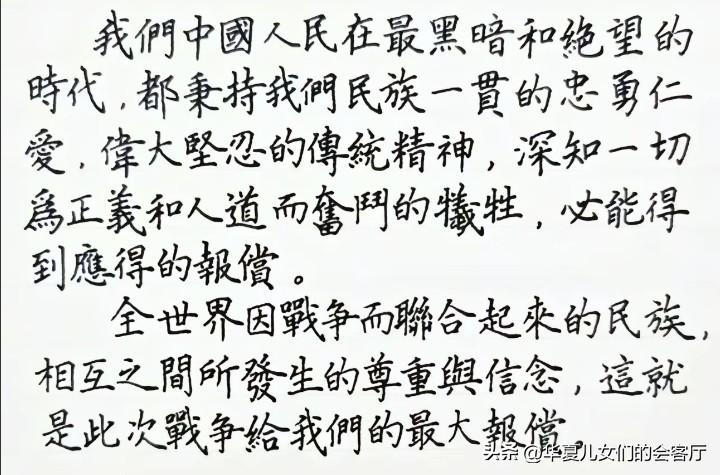 我們中國人民在最黑暗和絕望的
時代，都秉持我們民族一貫的忠勇仁
愛，偉大堅忍的傳統精神，深知一切
為正義和人道而奮鬥的犧牲，必能得
到應得的報償。
全世界因戰爭而聯合起來的民族，
相互之間所發生的尊重與信念，這就
是此次戰爭給我們的最大報償。
头条 @华夏儿女们的会客厅